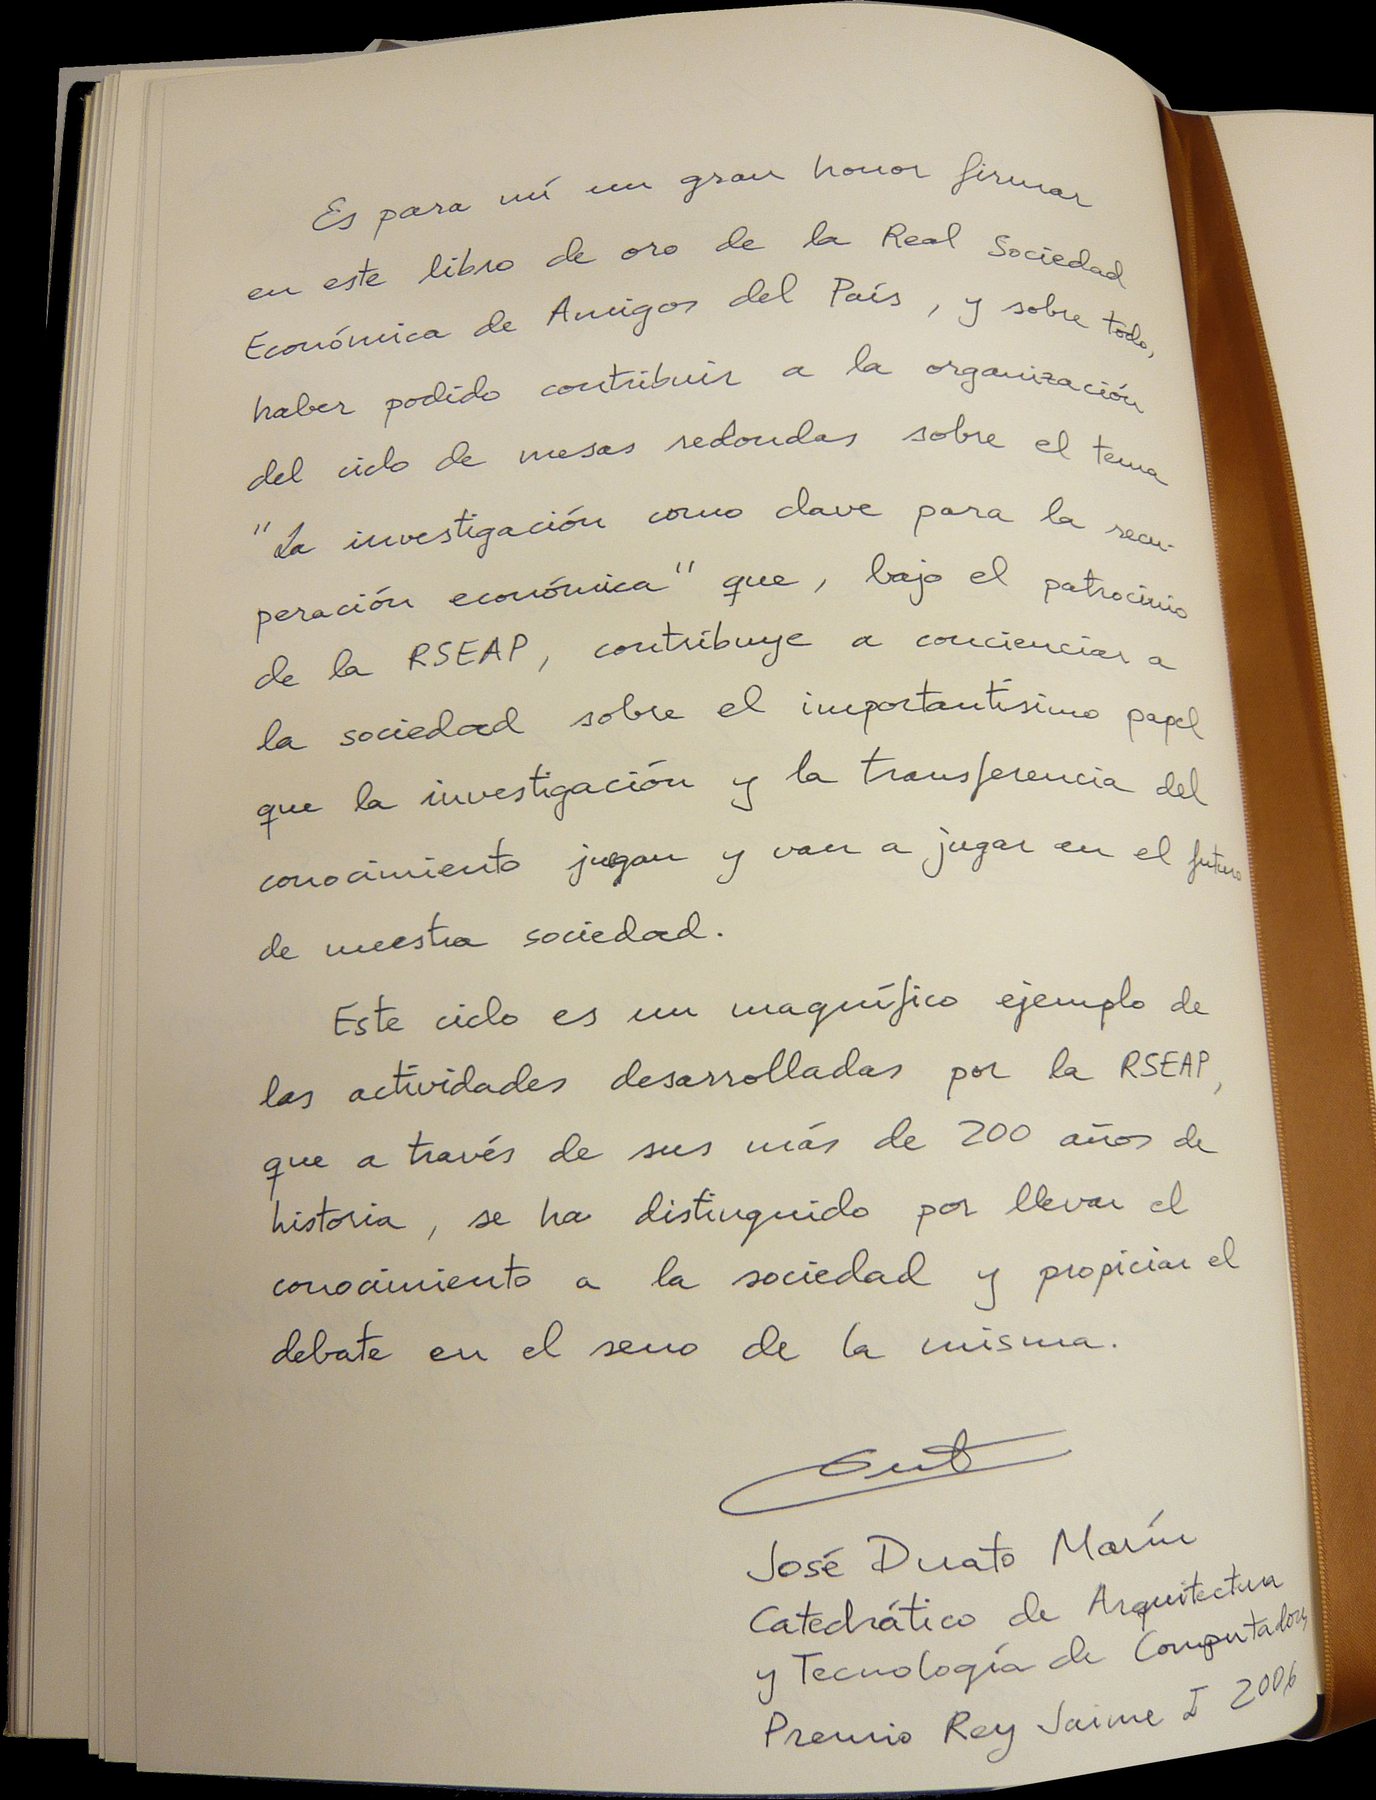 Es para mí un gran honor firmar
en este libro de oro de la Real Sociedad
Económica de Amigos del País, y sobre todo,
haber podido contribuir a la organización
del ciclo de mesas redondas sobre el tema
"La investigación como clave para la recu-
peración económica" que, bajo el patrocinio
de la RSEAP, contribuye a concienciar a
la sociedad sobre el importantísimo papel
que la investigación y la transferencia del
conocimiento juegan y van a jugar en el futuro
de nuestra sociedad.
Este ciclo es un magnífico ejemplo de
las actividades desarrolladas por la RSEAP,
que a través de sus más de 200 años de
historia, se ha distinguido por llevar el
conocimiento a la sociedad y propiciar el
debate en el seno de la misma.
José Duato Marín
Catedrático de Arquitectura
y Tecnología de Computadores
Premio Rey Jaime I 2006